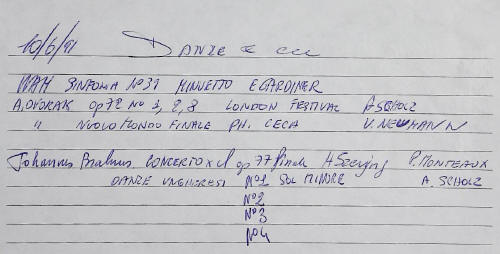 10/6/91 DANZE & CCC
WAM SINFONIA Nº 39 MINUETTO E GARDINER
A. DVORAK op 72 No 1, 2, 8 LONDON FESTIVAL A SCHOLZ
" NUOVO MONDO FINALE PH. CECA V. NEUMANN
Johannes Brahms CONCERTO x Vl op 77 finale H Szeryng P. MONTEAUX
DANZE UNGHERESI Nº 1 SOL MINORE A. SCHOLZ
Nº 2
Nº 3
Nº 4